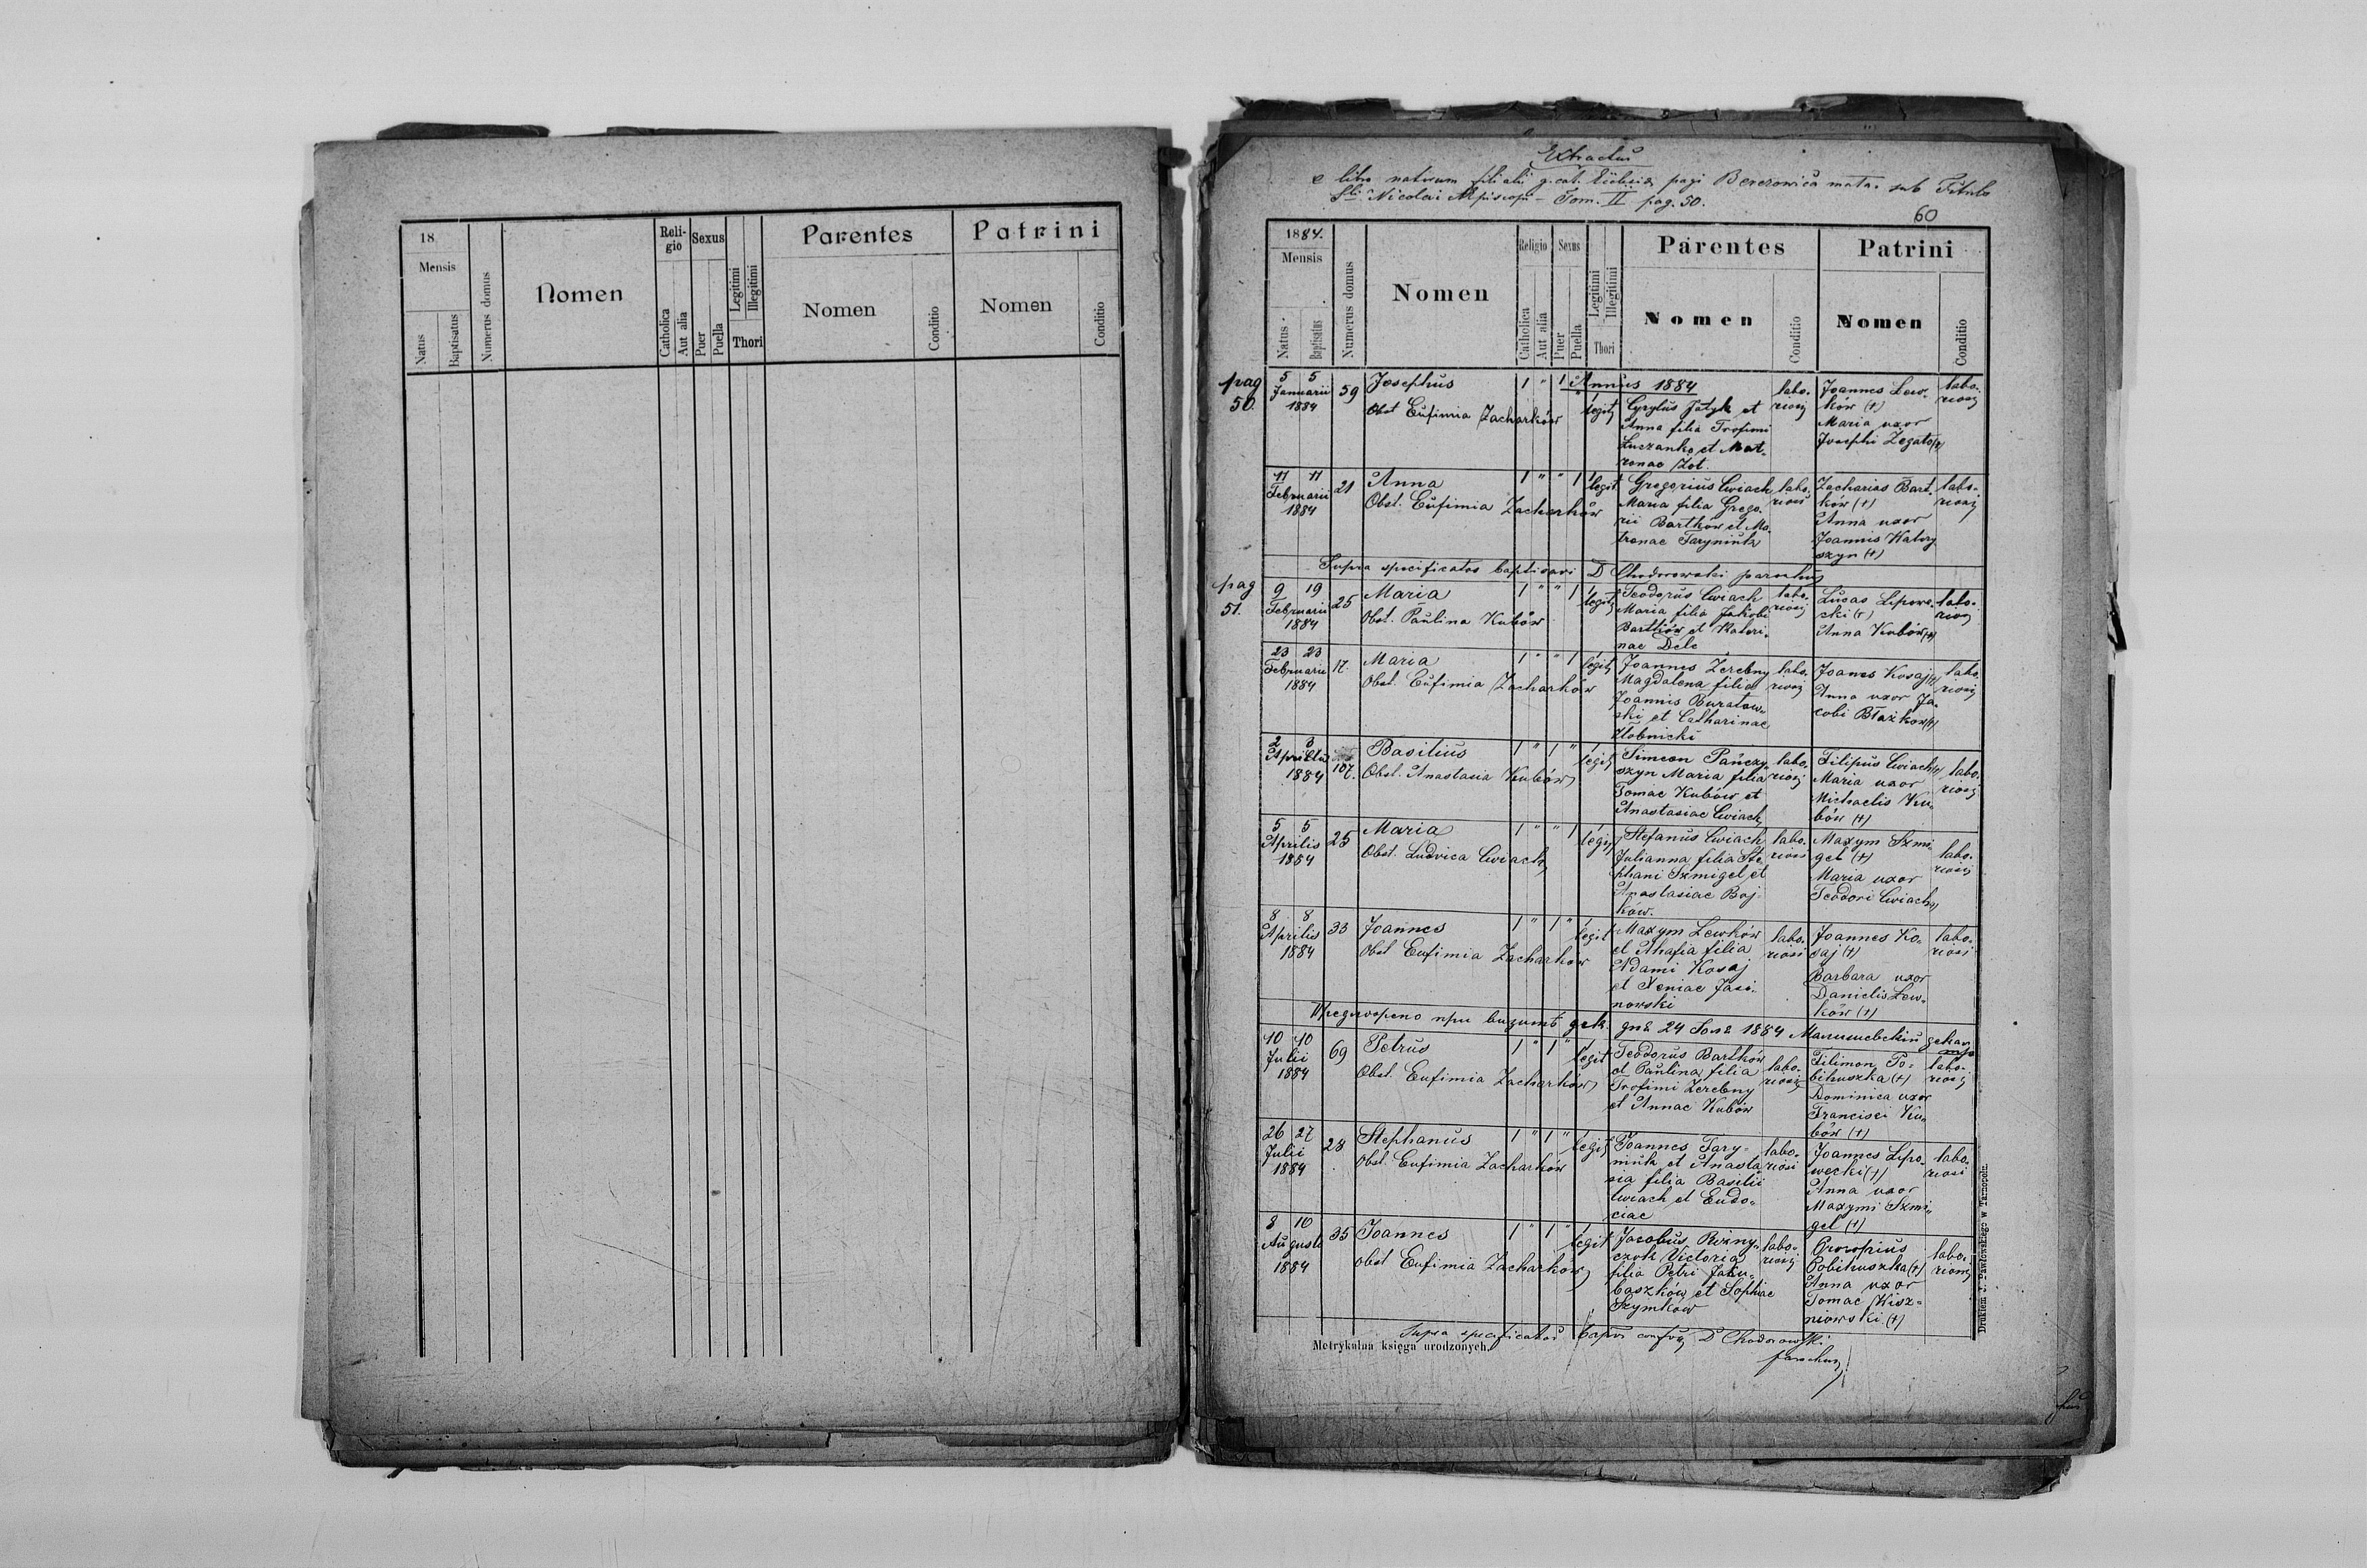 18
Mensis
Natus
Baptisatus
Numerus domus
Nomen
Reli-
gio
Catholica
Aut alia
Sexus
Puer
Puella
Legitimi
Illegitimi
Thori
Parentes
Nomen
Conditio
Patrini
Nomen
Conditio
Extractus
e libro natorum filialis g. cat. Ecclesia pagi Berezowica mała. sub Titulo
Sti. Nicolai Episcopi - Tom. II pag. 50.
60
1884.
Mensis
Natus
Baptisatus
Numerus domus
Nomen
Religio
Catholica
Aut alia
Sexus
Puer
Puella
Legitimi
Illegitimi
Thori
Parentes
Nomen
Conditio
Patrini
Nomen
Conditio
Annus 1884
pag
50.
5 5
Januarii
1884
59
Josephus
Obst Eufimia Zacharków
1 " 1 "
legit
Cyrylus Jatyk et
Anna filia Trofimi
Luczanko et Mat-
ronae Zot.
labo-
riosi
Joannes Lew-
ków (+)
Maria uxor
Josephi Zegato (+)
labo-
riosi
11 11
Februarii
1884
21
Anna
Obst. Eufimia Zacharków
1 " " 1
legit
Gregorius Cwiach
Maria filia Grego-
rii Bartkow et Ma-
tronae Taryniuk
labo-
riosi
Zacharias Bart-
ków (+)
Anna uxor
Joannis Katry
szyn (+)
labo-
riosi
Supra specificatos baptisavi D Chodorowski parochus
pag
51.
9 19
Februarii
1884
25
Maria
Obst. Paulina Kubów
1 " " 1
legit
Teodorus Cwiach
Maria filia Jakobi
Bartków et Kateri-
nae Dele
labo-
riosi
Lucas Lipowe-
cki (+)
Anna Kubów (+)
labo-
riosi
23 23
Februarii
1884
17.
Maria
Obst. Eufimia Zacharków
1 " " 1
legit
Joannes Zerebny
Magdalena filia
Joannis Buratow-
ski et Catharinae
Złobnicki
labo-
riosi
Joanes Kosaj (+)
Anna uxor Ja-
cobi Błażkow (+)
labo-
riosi
2 3
Aprilis
1884
107.
Basilius
Obst. Anastasia Kubów
1 " 1 "
legit
Simeon Pańczy-
szyn Maria filia
Tomae Kubów et
Anastasiae Cwiach
labo-
riosi
Filipus Cwiach (+)
Maria uxor
Michaelis Ku-
bów (+)
labo-
riosi
5 5
Aprilis
1884
25
Maria
Obst. Ludvica Cwiach
1 " " 1
legit
Stefanus Cwiach
Julianna filia Ste
phani Szmigel et
Anastasiae Boj-
ków.
labo-
riosi
Maxym Szmi-
gel (+)
Maria uxor
Teodori Cwiach
labo-
riosi
8 8
Aprilis
1884
33
Joannes
Obst Eufimia Zacharków
1 " 1 "
legit
Maxym Lewków
et Ahafia filia
Adami Kosaj
et Xeniae Jasi-
nowski
labo-
riosi
Joannes Ko-
saj (+)
Barbara uxor
Danielis Lew-
ków (+)
labo-
riosi
дня 24 1884
10 10
Julii
1884
69
Petrus
Obst. Eufimia Zacharków
1 " 1 "
legit
Teodorus Bartków
et Paulina filia
Trofimi Zerebny
et Annae Kubów
labo-
riosi
Filimon Po-
bihuszka (+)
Dominica uxor
Francisci Ku-
bów (+)
labo-
riosi
26 27
Julii
1884
28
Stephanus
Obst. Eufimia Zacharków
1 " 1 "
legit
Joannes Tary-
niuk et Anasta
sia filia Basilii
Cwiach et Eudo-
ciae
labo-
riosi
Joannes Lipo-
wecki (+)
Anna uxor
Maxymi Szmi-
gel (+)
labo-
riosi
8 10
Augusti
1884
35
Joannes
obst Eufimia Zacharków
1 " 1 "
legit
Jacobus Rizny-
czok Victoria
filia Petri Jaku-
baszków et Sophiae
Szymków
labo-
riosi
Procopius
Pobihuszka (+)
Anna uxor
Tomae Kisz-
niowski (+)
labo-
riosi
Supra specificatos D Chodorowski
parochus
Metrykalna księga urodzonych.
Drukiem J. Pawłowskiego w Tarnopolu.